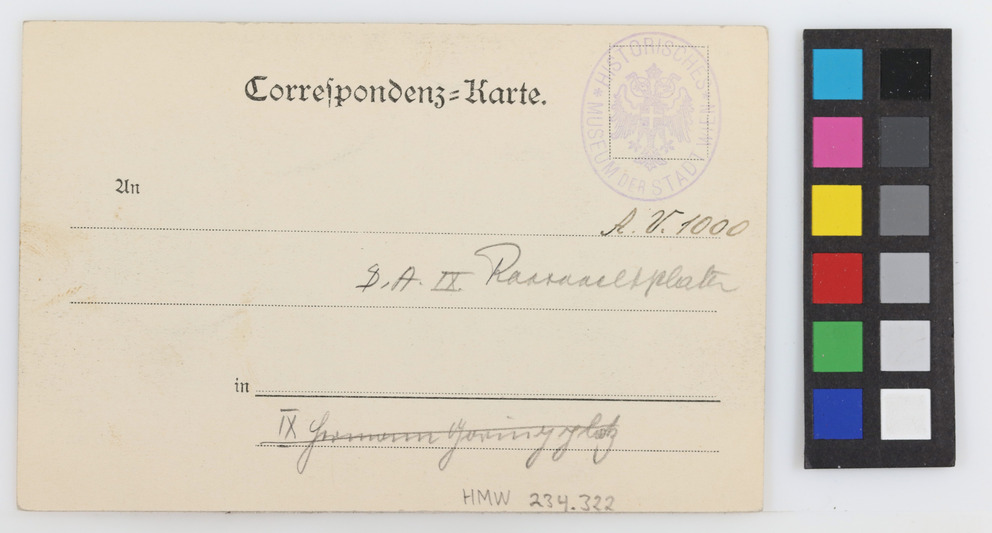 Correspondenz-Karte.
* HISTORISCHES * MUSEUM DER STADT WIEN
An
A. V. 1000
S. A. IX. Roosveltplatz
in
IX Hermann Göringplatz
HMW 234.322